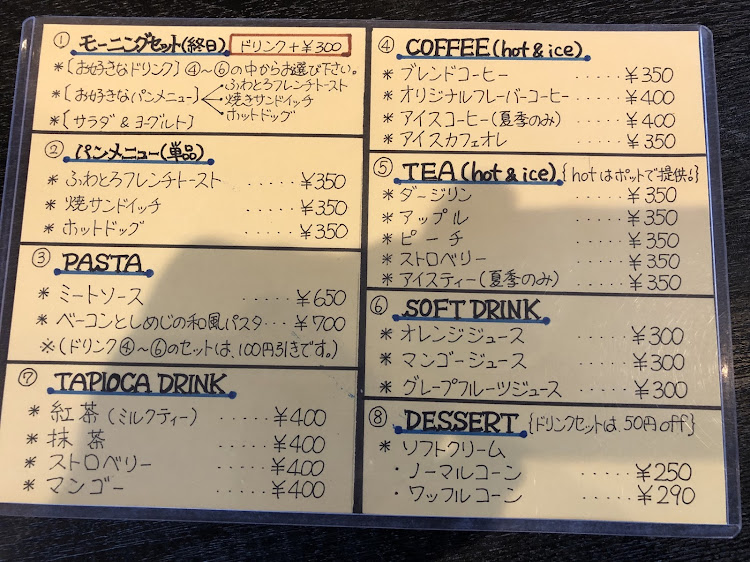 ① モーニングセット(終日) ドリンク+¥300
*[お好きなドリンク] ④〜⑥の中からお選び下さい。
*[お好きなパンメニュー]
ふわとろフレンチトースト
焼きサンドイッチ
ホットドッグ
*[サラダ & ヨーグルト]
② パンメニュー(単品)
* ふわとろフレンチトースト ····· ¥350
* 焼サンドイッチ ····· ¥350
* ホットドッグ ····· ¥350
③ PASTA
* ミートソース ····· ¥650
* ベーコンとしめじの和風パスタ··· ¥700
※(ドリンク④〜⑥のセットは、100円引きです。)
⑦ TAPIOCA DRINK
* 紅茶(ミルクティー) ····· ¥400
* 抹茶 ····· ¥400
* ストロベリー ····· ¥400
* マンゴー ····· ¥400
④ COFFEE(hot & ice)
* ブレンドコーヒー ····· ¥350
* オリジナルフレーバーコーヒー ··· ¥400
* アイスコーヒー(夏季のみ) ···· ¥400
* アイスカフェオレ ····· ¥350
⑤ TEA(hot & ice) {hotはポットで提供!}
* ダージリン ····· ¥350
* アップル ····· ¥350
* ピーチ ····· ¥350
* ストロベリー ····· ¥350
* アイスティー(夏季のみ) ····· ¥350
⑥ SOFT DRINK
* オレンジジュース ····· ¥300
* マンゴージュース ····· ¥300
* グレープフルーツジュース ····· ¥300
⑧ DESSERT {ドリンクセットは、50円off}
* ソフトクリーム
・ノーマルコーン ····· ¥250
・ワッフルコーン ····· ¥290